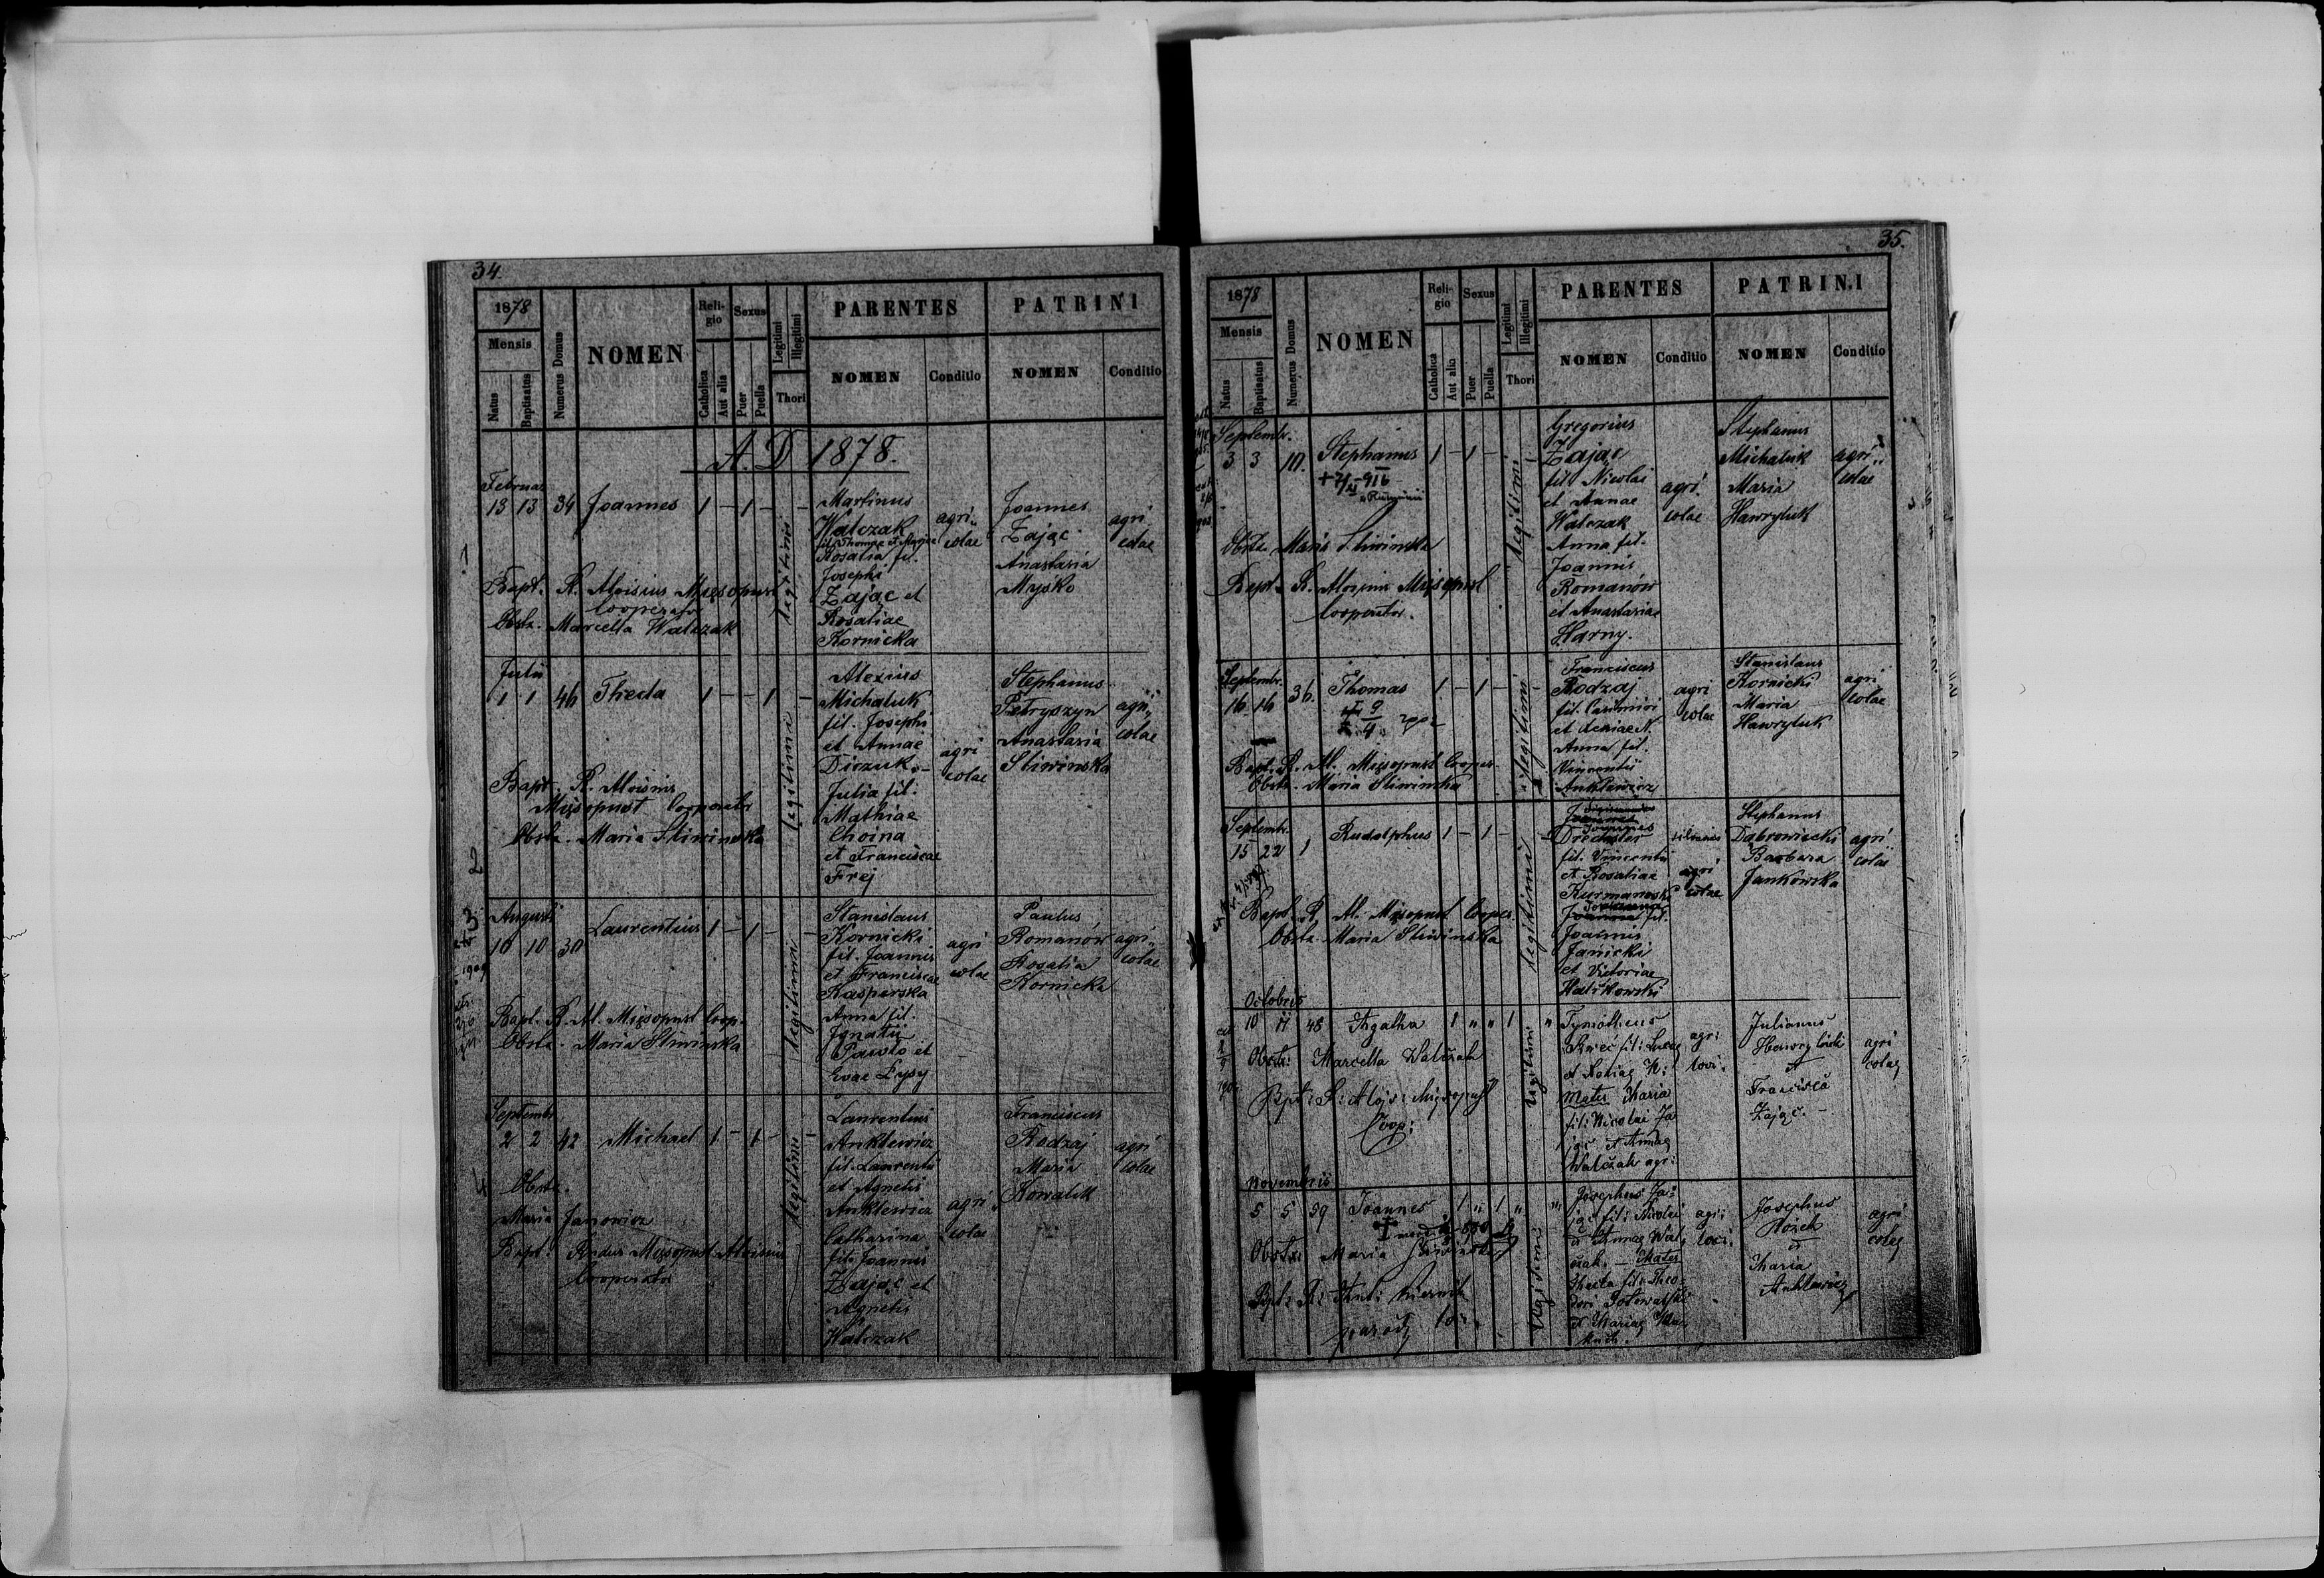 34.
1878
Mensis
Natus
Baptisatus
Numerus Domus
NOMEN
Reli-
gio
Catholica
Aut alia
Sexus
Puer
Puella
Legitimi
Illegitimi
Thori
PARENTES
NOMEN
Conditio
PATRINI
NOMEN
Conditio
A. D 1878.
1
Februar
13 13 34 Joannes 1 - 1 - -
legitimi
Martinus
Walczak
fil. Thomae et Mariae
Rosalia fil.
Josephi
Zając et
Rosaliae
Kornicka
agri
colae
Joannes
Zając
Anastasia
Myśko
agri
colae
Bapt. R. Aloisius Mięsopust
Cooperator
Obstx. Marcella Walczak
Julii
1 1 46 Thecla 1 - - 1 -
legitimi
Alexius
Michaluk
fil. Josephi
et Annae
Diczuk.-
Julia fil.
Mathiae
Choina
et Franciscae
Frej
agri
colae
Stephanus
Petryszyn
Anastasia
Sliwinska
agri
colae
Bapt. R. Aloisius
Mięsopust Cooperator
Obstx. Maria Sliwinska
2
3
Augusti
10 10 30 Laurentius 1 - 1 - -
legitimi
Stanislaus
Kornicki
fil. Joannis
et Franciscae
Kasperska
Anna fil.
Ignatii
Pawlo et
Evae Łysy
agri
colae
Paulus
Romanów
Rosalia
Kornicka
agri
colae
1909
Bapt. R. Al. Mięsopust Coop.
Obstx. Maria Sliwinska
Septembr.
2 2 42 Michael 1 - 1 - -
legitimi
Laurentius
Anklewicz
fil. Laurentii
et Agnetis
Anklewicz
Catharina
fil. Joannis
Zając et
Agnetis
Walczak
agri
colae
Franciscus
Rodzaj
Maria
Kowalik
agri
colae
4
Obstx.
Maria Janowicz
Bapt. Rndus Mięsopust Aloisius
Cooperator
35.
1878
Mensis
Natus
Baptisatus
Numerus Domus
NOMEN
Reli-
gio
Catholica
Aut alia
Sexus
Puer
Puella
Legitimi
Illegitimi
Thori
PARENTES
NOMEN
Conditio
PATRINI
NOMEN
Conditio
Septembr.
3 3 10. Stephanus 1 - 1 - -
legitimi
Gregorius
Zając
fil. Nicolai
et Annae
Walczak
Anna fil.
Joannis
Romanów
et Anastasiae
Harny.
agri
colae
Stephanus
Michaluk
Maria
Hawryluk
agri
colae
Obstx. Maria Sliwinska
Bapt. R. Aloisius Mięsopust
Cooperator.
Septembr.
16 16 36. Thomas 1 - 1 - -
Franciscus
Rodzaj
fil. Casimiri
et Xeniae N.
Anna fil.
Vincentii
Anklewicz
agri
colae
Stanislaus
Kornicki
Maria
Hawryluk
agri
colae
Bapt. R. Al. Mięsopust Cooper.
Obstx. Maria Sliwinska
Septembr.
15 22 1 Rudolphus 1 - 1 - -
legitimi
Joannes
Drechsler
fil. Vincentii
et Rosaliae
Kurmanowski
Joannis
Janicki
et Victoriae
agri
colae
Stephanus
Dąbrowiecki
Barbara
Jankowska
agri
colae
Bapt. R. Al. Mięsopust Cooper.
Obstx. Maria Sliwinska
Octobris
10 11 48 Agatha 1 " " 1 "
legitimi
Tymotheus
fil: Lucae
N:
Mater Maria
fil: Nicolai Za
jąc et Annae
Walczak agr:
Julianus
et
Francisca
Zając.-
agri
colae
Obstx: Marcella Walczak
Bpt: R: Alojs: Mięsopust
Coop:
Novembris
5 5 59 Joannes 1 " 1 " "
legitimi
Josephus Za-
jąc fil: Nicolai
et Annae Wal
czak. - Mater
Thecla fil: Theo-
dori
et Mariae
Josephus
et
Maria
Anklewicz
agri
colae
Obstx: Maria Sliwinska
Bpt: R: Ant: